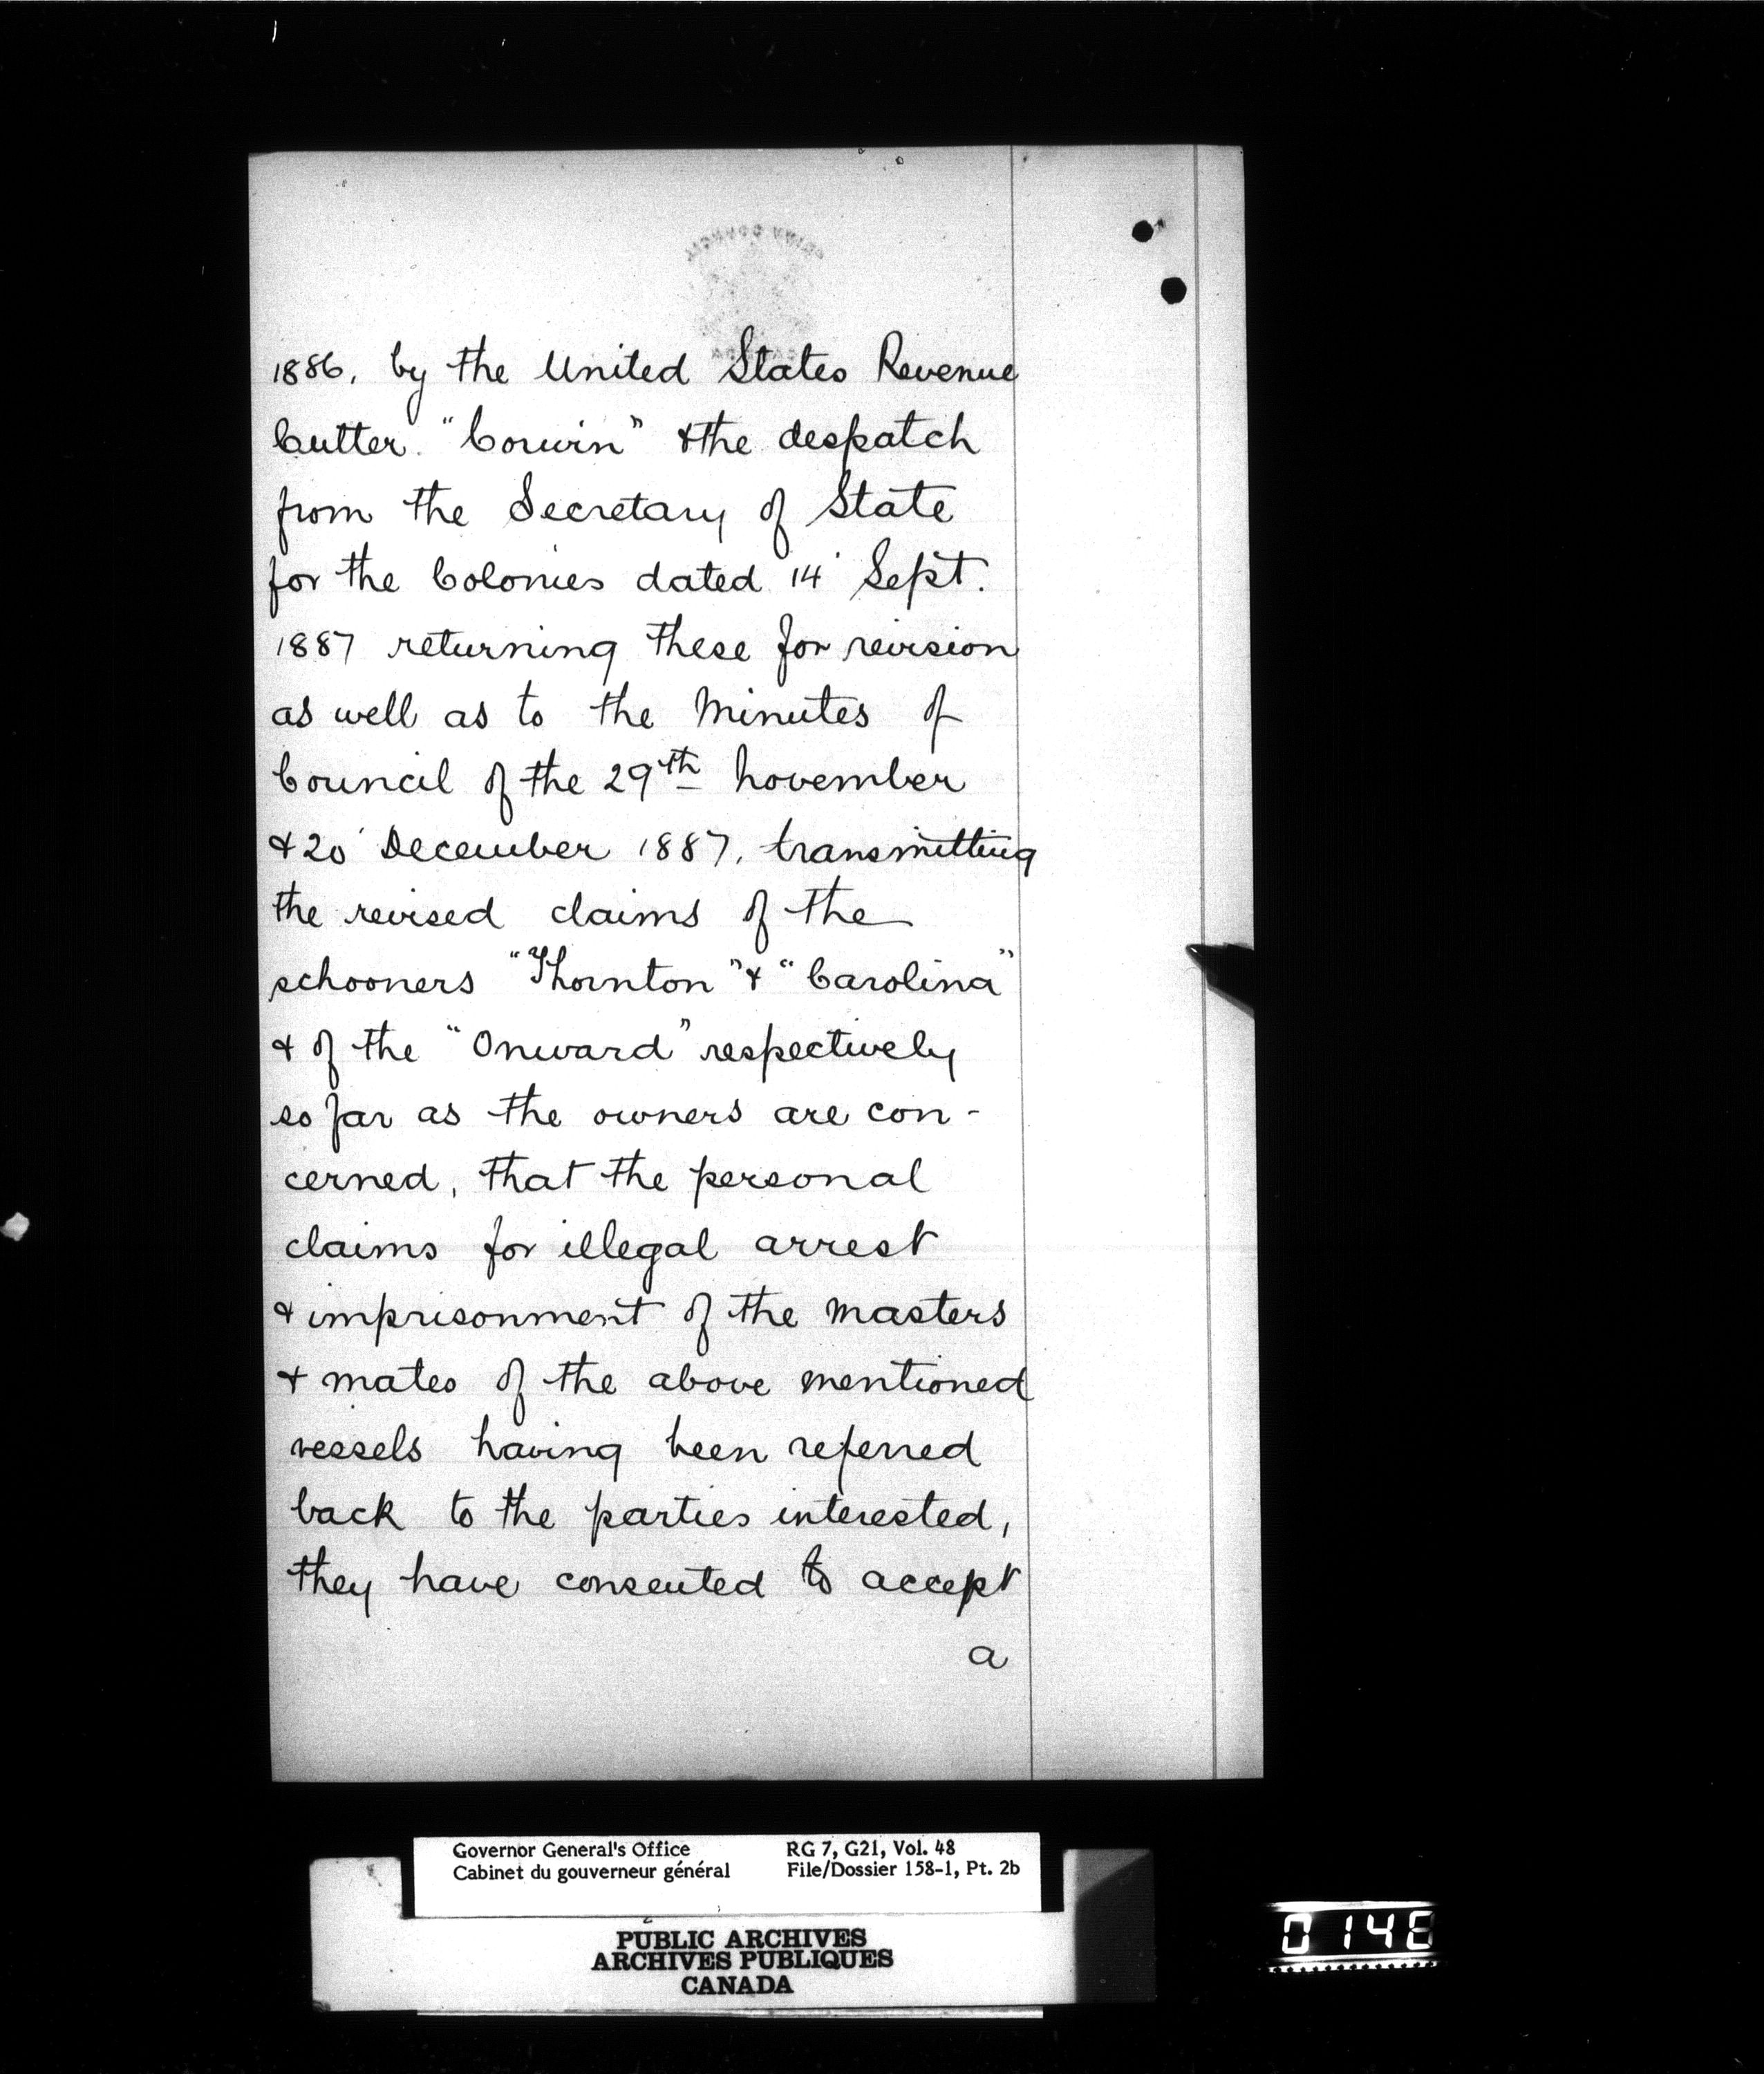 1886, by the United States Revenue
Cutter "Corwin" & the despatch
from the Secretary of State
for the Colonies dated 14 Sept.
1887 returning these for revision
as well as to the Minutes of
Council of the 29th November
& 20 December 1887, transmitting
the revised claims of the
schooners "Thornton" & "Carolina"
& of the "Onward" respectively
so far as the owners are con-
cerned, that the personal
claims for illegal arrest
& imprisonment of the Masters
& mates of the above mentioned
vessels having been referred
back to the parties interested,
they have consented to accept
a
Governor General's Office RG 7, G21, Vol. 48
Cabinet du gouverneur général File/Dossier 158-1, Pt. 2b
PUBLIC ARCHIVES
ARCHIVES PUBLIQUES
CANADA